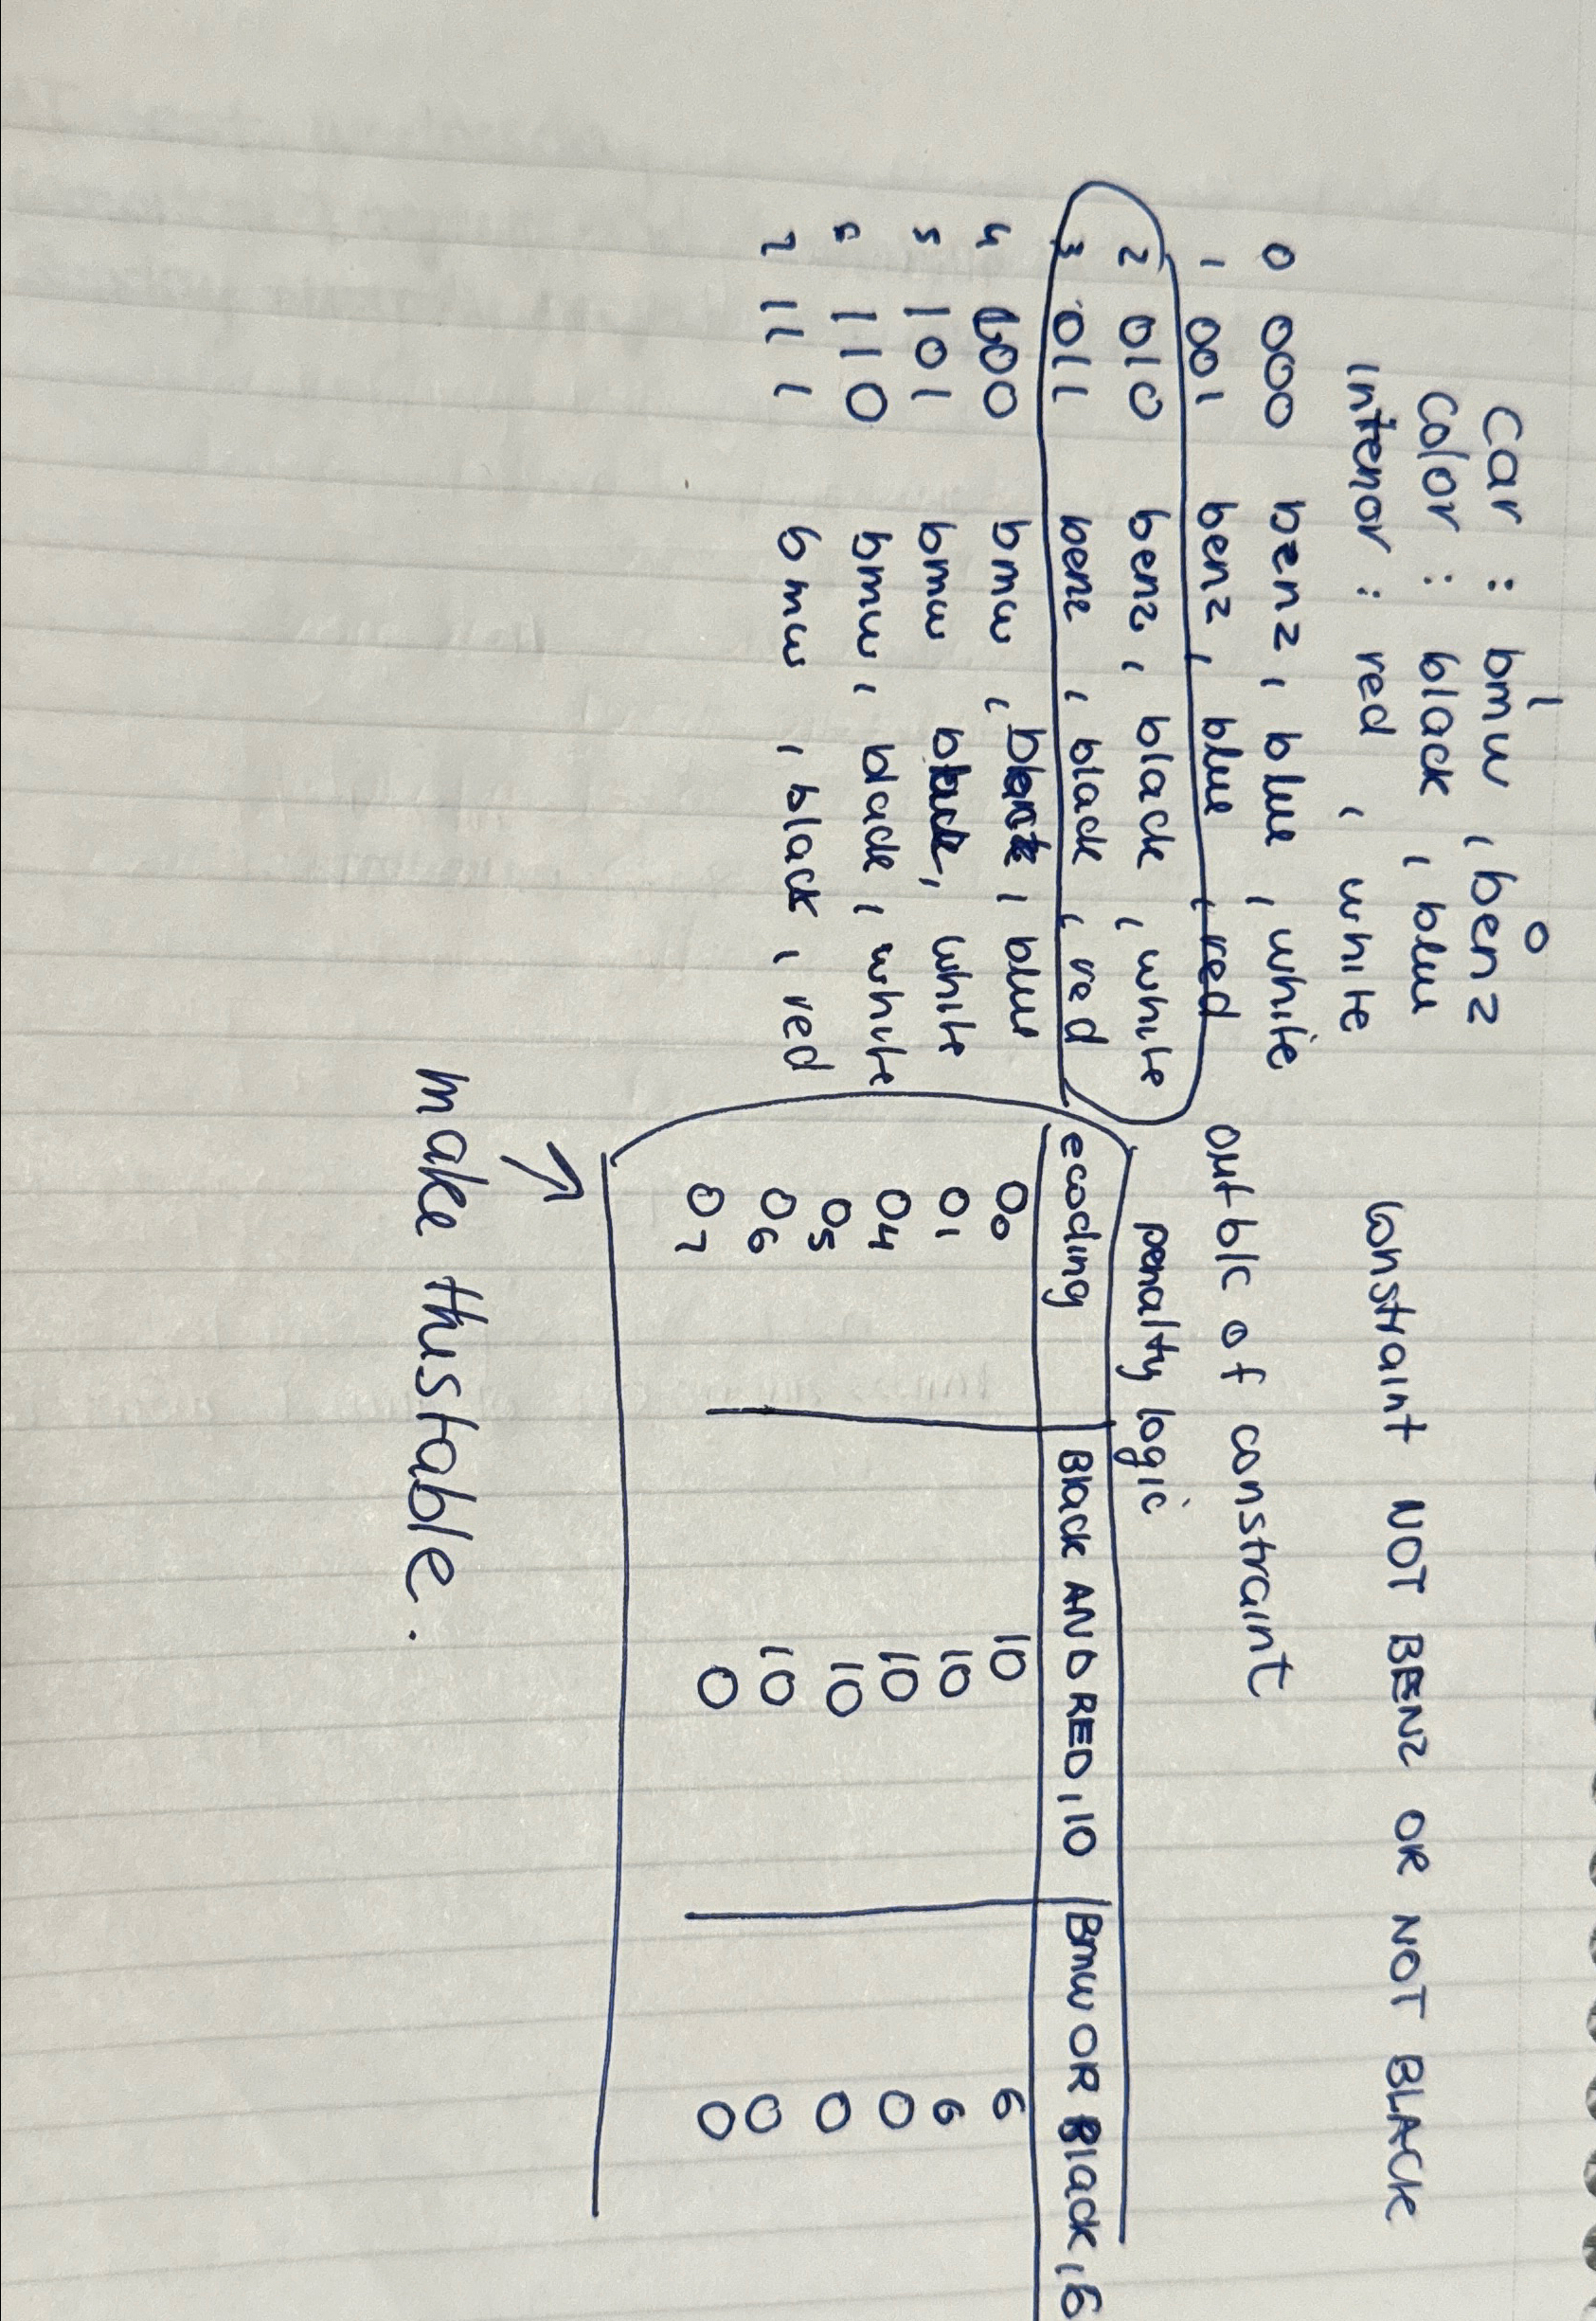 1 0
car : bmw , benz
color : black , blue
interior : red , white
constraint NOT BENZ OR NOT BLACK
0 000 benz , blue , white
1 001 benz , blue , red
out b/c of constraint
2 010 benz , black , white
penalty logic
3 011 benz , black , red
4 100 bmw , , blue
5 101 bmw black , white
6 110 bmw , black , white
7 111 bmw , black , red
ecoding | Black AND RED , 10 | Bmw OR Black , 6
O0 10 6
O1 10 6
O4 10 0
O5 10 0
O6 10 0
O7 0 0
make this table .